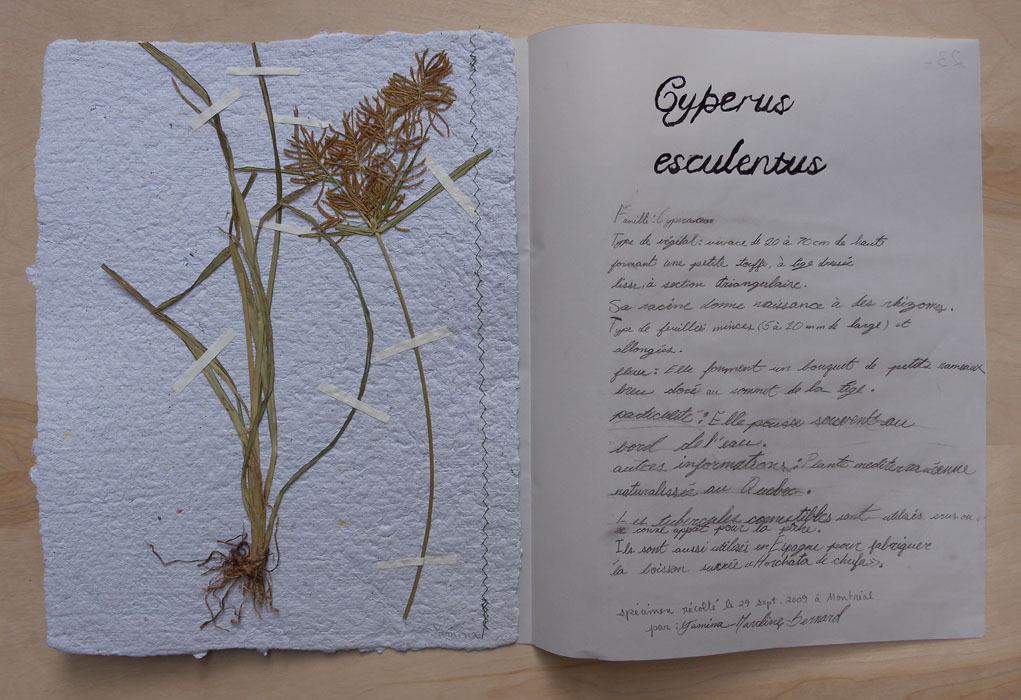 Yamina
23
Cyperus
esculentus
Famille : Cyperaceae
Type de végétal : vivace de 20 à 70 cm de hauts
formant une petite touffe, à tige dressée
lisse, à section triangulaire.
Sa racine donne naissance à des rhizomes.
Type de feuilles minces (5 à 10 mm de large) et
allongées.
fleur : Elle forment un bouquet de petits rameaux
brun doré au sommet de la tige.
particularité : Elle pousse souvent au
bord de l'eau.
autres informations : Plante mediterranéenne
naturalissée au Quebec.
Les tubercules comestibles sont utilisés crus ou
comme appat pour la pêche.
Ils sont aussi utilisés en Espagne pour fabriquer
la boisson sucrée « Horchata de chufa ».
spécimen récolté le 29 sept. 2009 à Montréal
par : Yamina Bernard